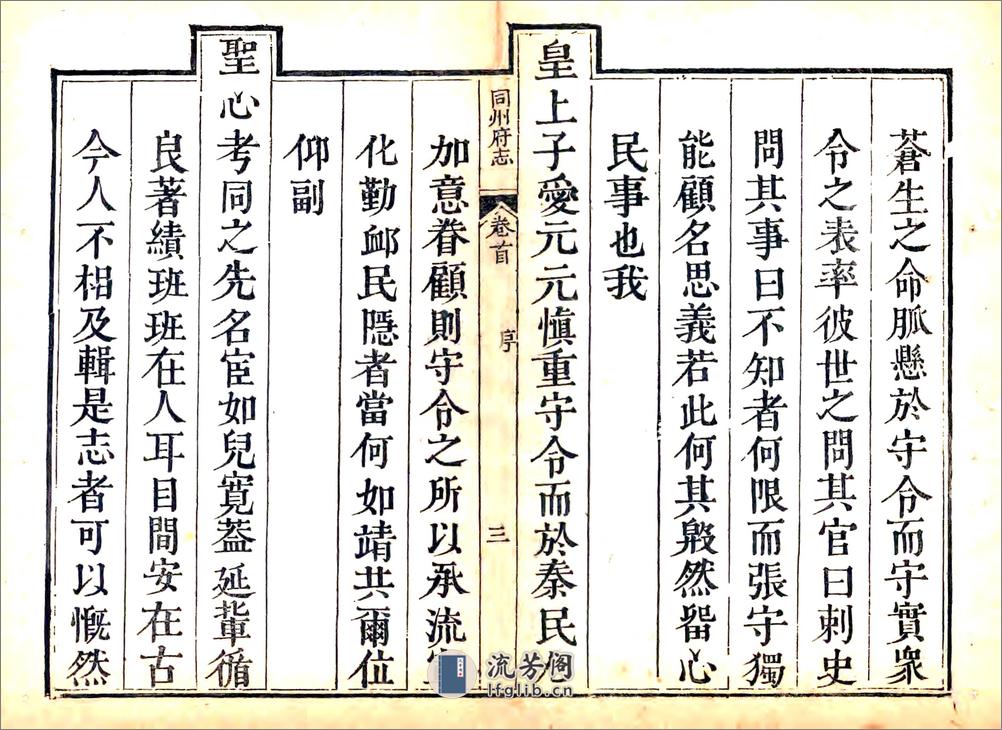 蒼生之命脈懸於守令而守實衆
令之表率彼世之問其官曰刺史
問其事曰不知者何限而張守獨
能顧名思義若此何其殷然畱心
民事也我
皇上子愛元元慎重守令而於秦民
同州府志 卷首 序 三
加意眷顧則守令之所以承流
化勤䘏民隱者當何如靖共爾位
仰副
聖心考同之先名宦如兒寬蓋延輩循
良著績班班在人耳目間安在古
今人不相及輯是志者可以慨然
流芳阁
lfglib.cn